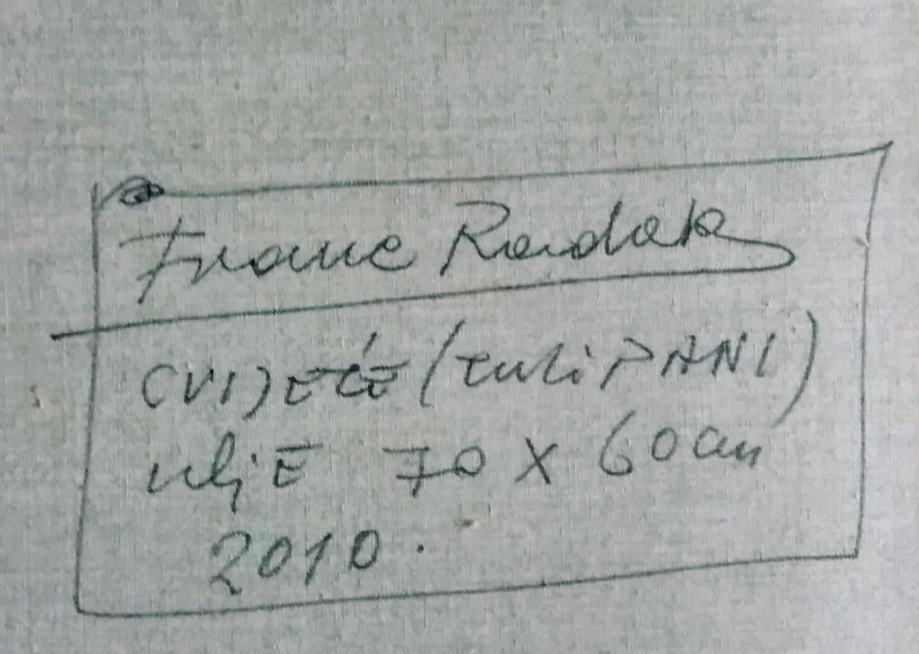 Frane Radak
CVIJEĆE (tuliPANI)
uljE 70 X 60 cm
2010.